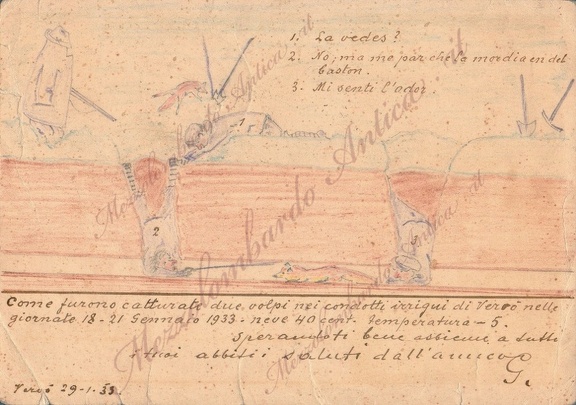 1. La vedes?
2. No, ma me par che la mordia en del
baston.
3. Mi senti l'ador.
1
2
3
Come furono catturate due volpi nei condotti irrigui di Vervò nelle
giornate 18-21 Gennaio 1933 - neve 40 cent. Temperatura -5.
Sperandoti bene assieme a tutti
i tuoi abbiti i saluti dall'amico
G.
Vervò 29-1-33.
Mezzolombardo Antica.it
Mezzolombardo Antica.it
Mezzolombardo Antica.it